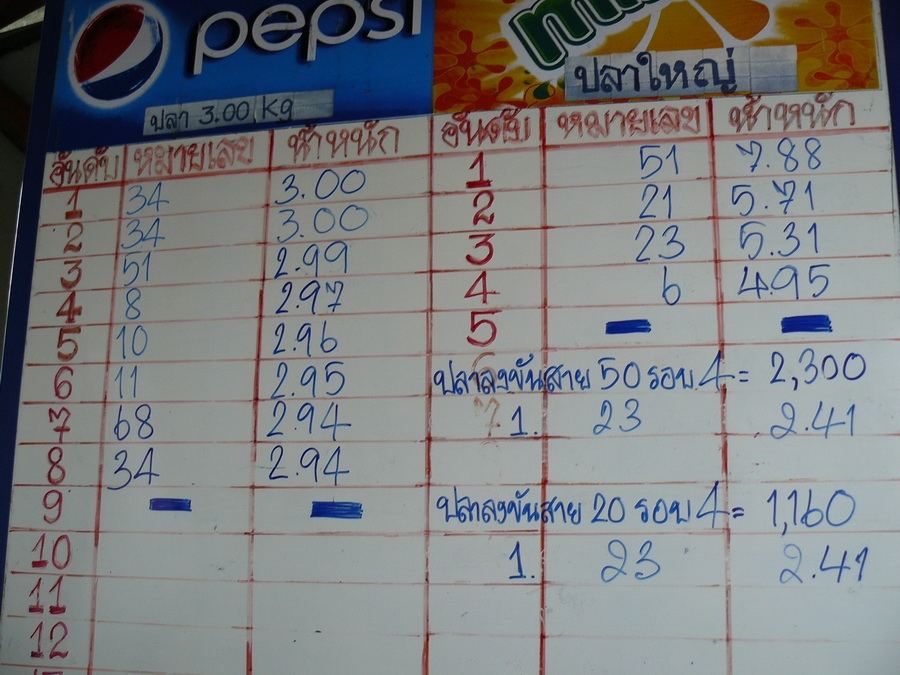 pepsi
ปลา 3.00 Kg
อันดับ หมายเลข น้ำหนัก
1 34 3.00
2 34 3.00
3 51 2.99
4 8 2.97
5 10 2.96
6 11 2.95
7 68 2.94
8 34 2.94
9
10
11
12
ปลาใหญ่
อันดับ หมายเลข น้ำหนัก
1 51 7.88
2 21 5.71
3 23 5.31
4 6 4.95
5
ปลาลงขันสาย 50 รอบ 4 = 2,300
1. 23 2.41
ปลาลงขันสาย 20 รอบ 4 = 1,160
1. 23 2.41